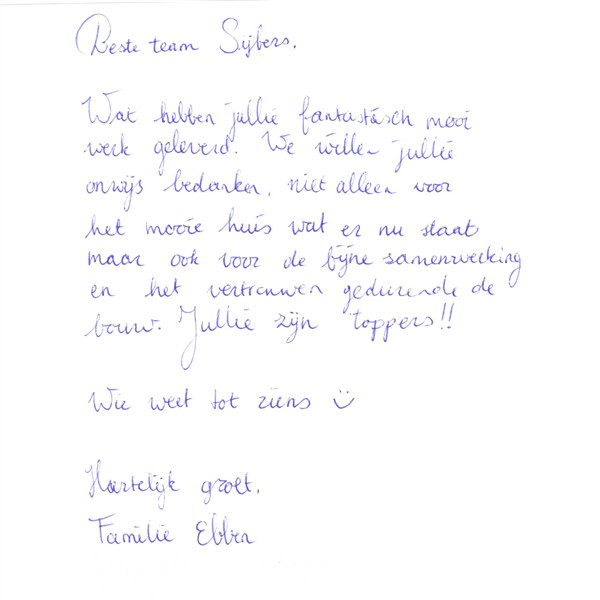 Beste team Sijbers,
Wat hebben jullie fantastisch mooi
werk geleverd. We willen jullie
onwijs bedanken, niet alleen voor
het mooie huis wat er nu staat
maar ook voor de fijne samenwerking
en het vertrouwen gedurende de
bouw. Jullie zijn toppers!!
Wie weet tot ziens ☺
Hartelijk groet,
Familie Ebben